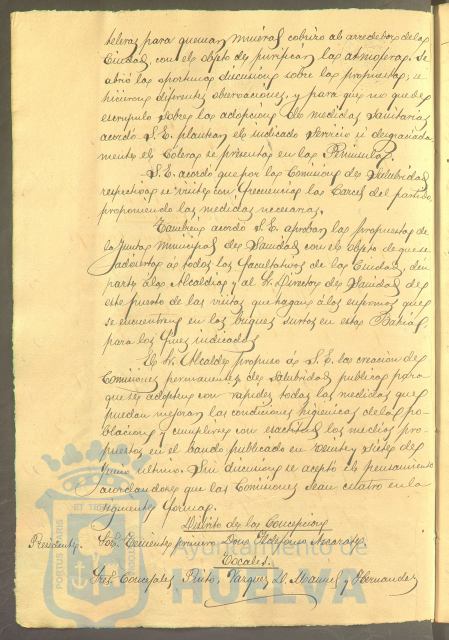 teleras para quemar mineral cobrizo al arrededor de la
Ciudad, con el objeto de purificar la atmosfera. Se
abrió la oportuna discusion sobre la propuesta, se
hicieron diferentes observaciones, y para que no quede
escrupulo sobre la adopcion de medidas sanitarias
acordó S.E. plantear el indicado servicio si desgraciada
mente el Colera se presenta en la Peninsula.
S.E. acordó que por la Comision de Salubridad
respectiva se visite con frecuencia la Carcel del partido
proponiendo las medidas necesarias.
Tambien acordó S.E. aprobar la propuesta de
la Junta Municipal de Sanidad con el objeto de que se
advierta á todos los facultativos de la Ciudad, den
parte á la Alcaldia y al Sr. Director de Sanidad de
este puerto de las visitas que hagan á los enfermos que
se encuentren en los buques surtos en esta Bahia,
para los fines indicados.
El Sr. Alcalde propuso á S.E. la creacion de
Comisiones permanentes de Salubridad publica para
que se adopten con rapidez todas las medidas que
puedan mejorar las condiciones higienicas de la po-
blacion y cumplirse con exactitud los medios pro-
puestos en el bando publicado en veinte y siete de
Junio ultimo. Sin discusion se aceptó el pensamiento
acordandose que las Comisiones sean cuatro en la
siguiente forma.
Distrito de la Concepcion
Presidente. Sor. Teniente primero Don Ildefonso
Vocales.
Sres. Concejales Prieto, Vazquez D. Manuel y Hernandez
PORTUS MARIS
ET TER
Ayuntamiento de
HUELVA